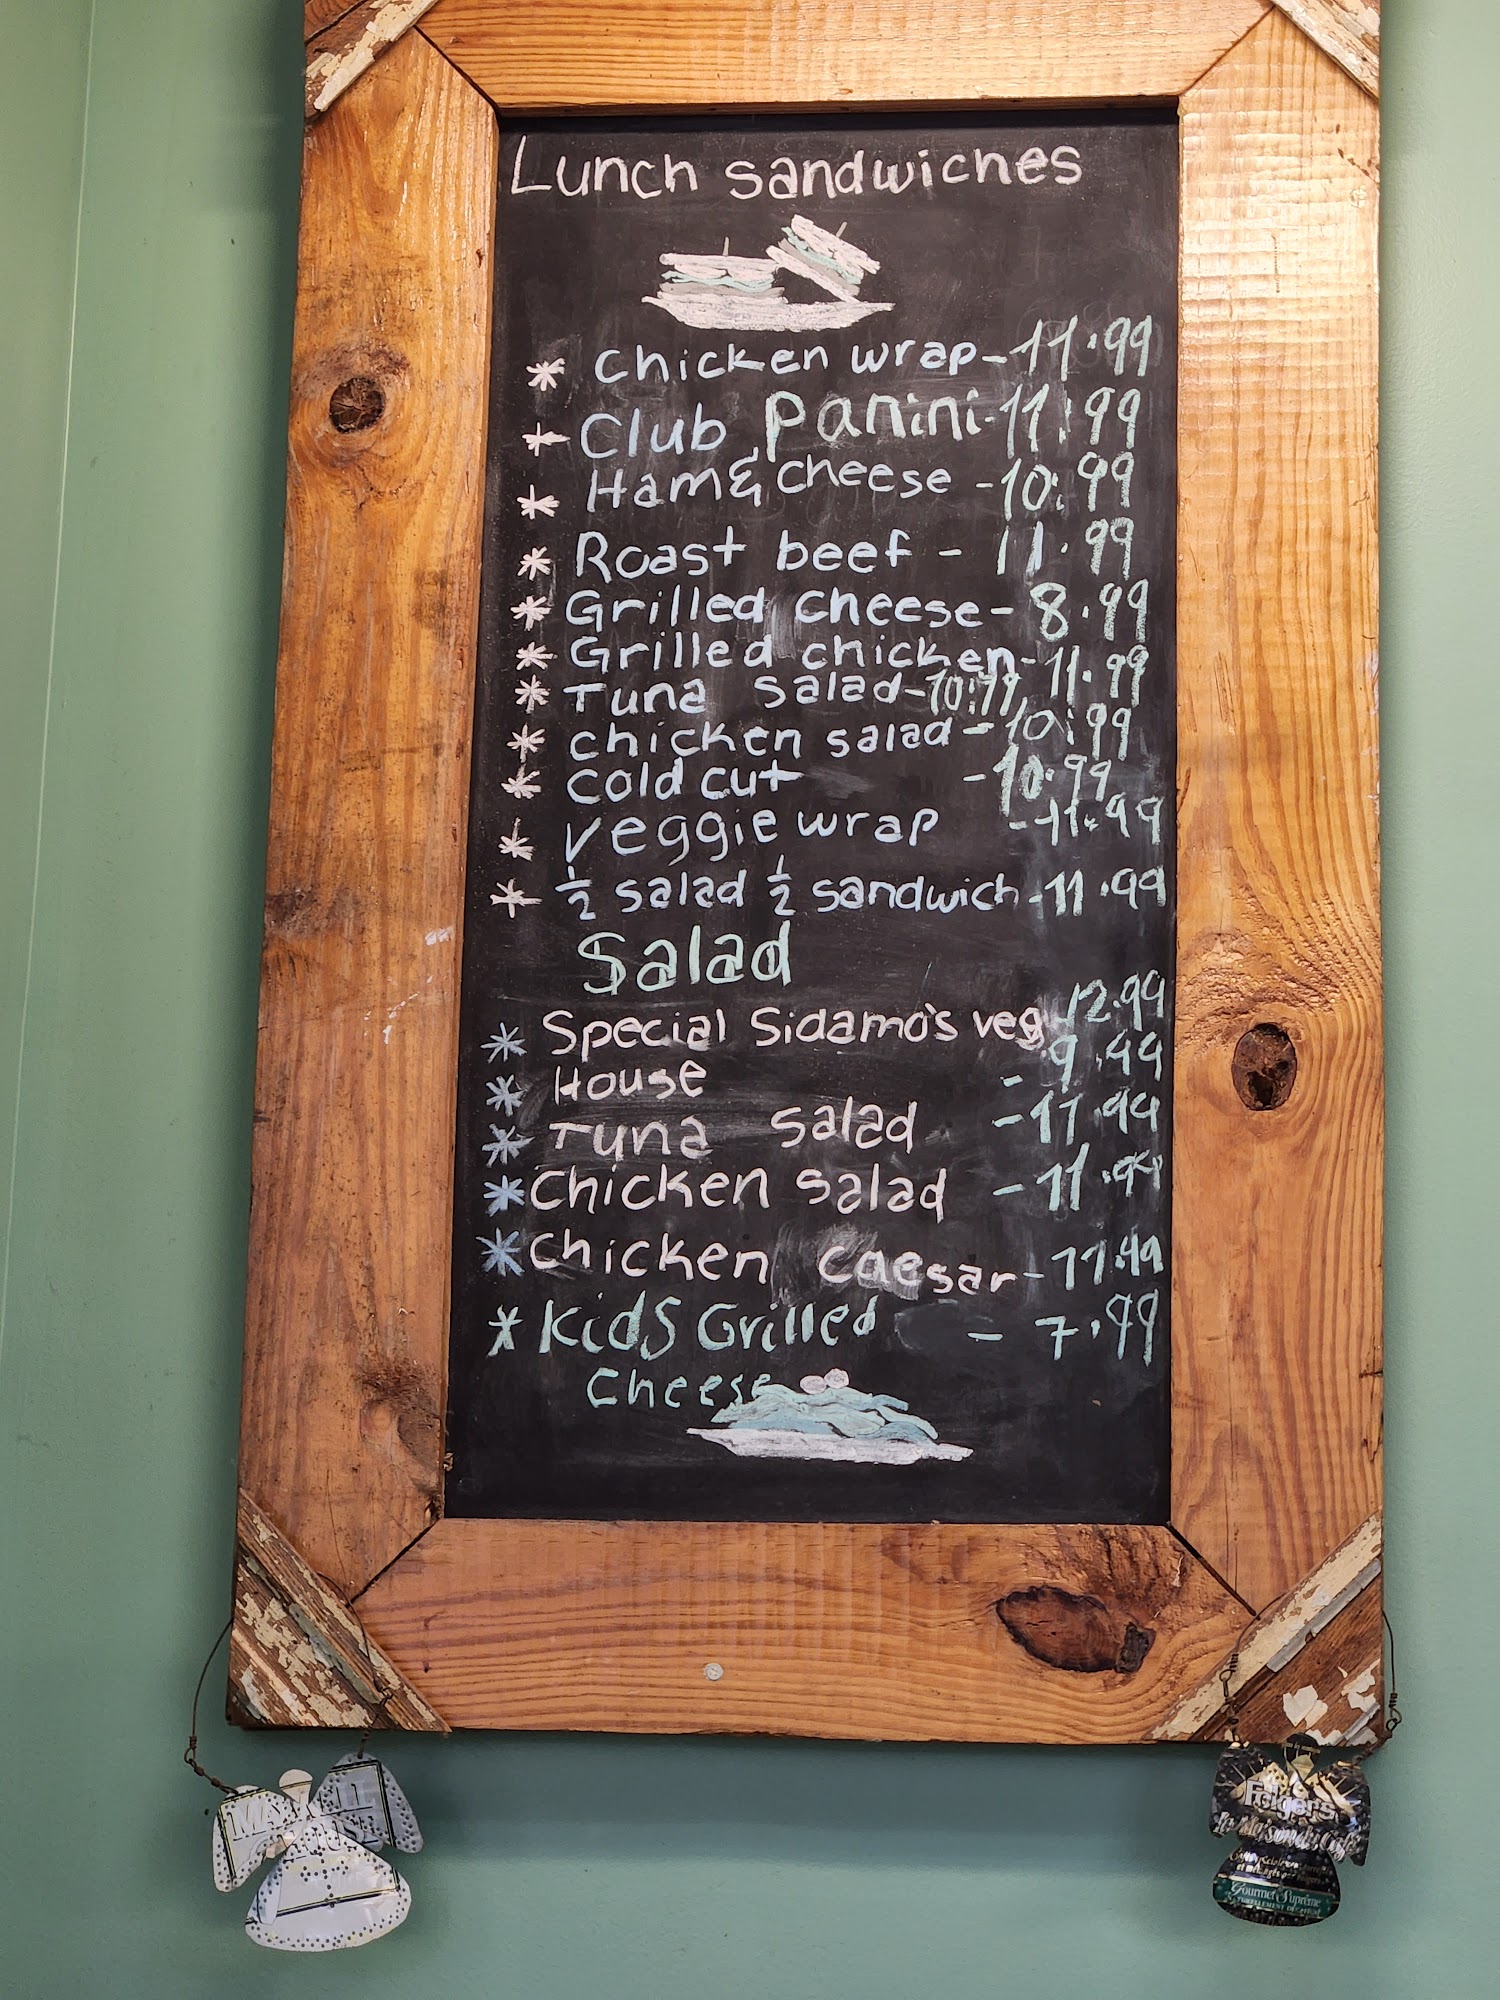 Lunch sandwiches
* Chicken wrap - 11.99
* Club Panini - 11.99
* Ham & cheese - 10.99
* Roast beef - 11.99
* Grilled cheese - 8.99
* Grilled chicken - 11.99
* Tuna salad - 10.99
* chicken salad - 10.99
* cold cut - 10.99
* veggie wrap - 11.99
* ½ salad ½ sandwich - 11.99
Salad
* Special Sidamo's veg - 12.99
* House - 9.99
* Tuna salad - 11.99
* Chicken salad - 11.99
* Chicken caesar - 11.99
* Kids Grilled - 7.99
Cheese
MAXWELL
HOUSE
Folgers
Gourmet Suprême